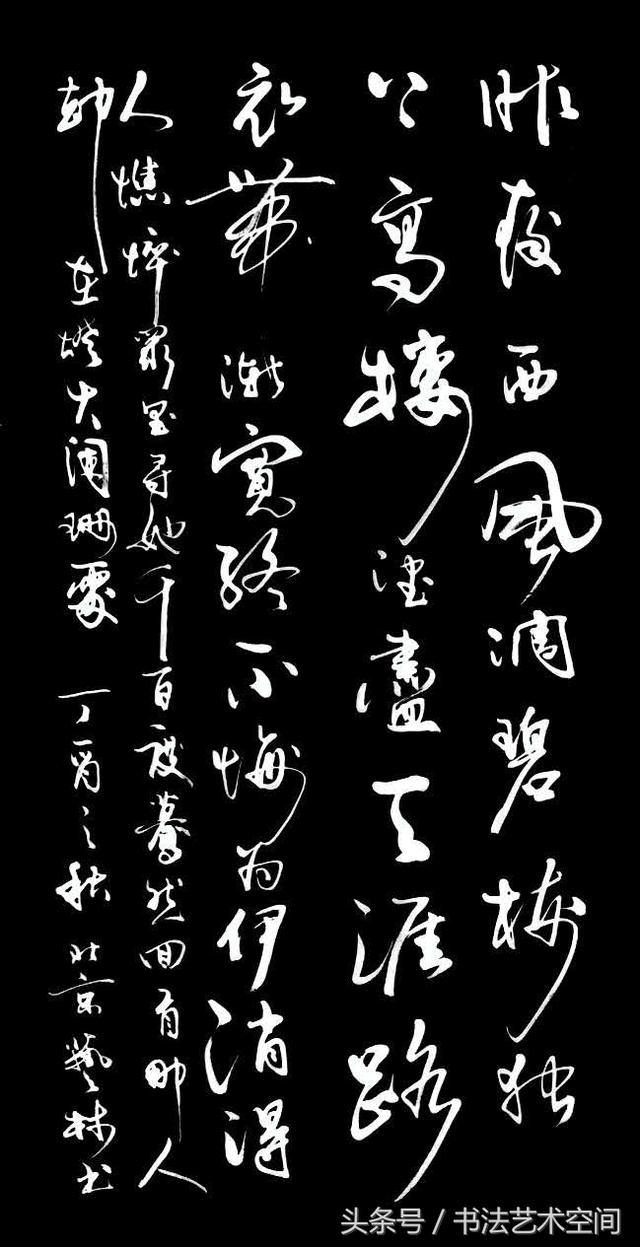 昨夜西風凋碧树独
上高楼望盡天涯路
衣帶漸寬終不悔为伊消得
人憔悴眾里尋她千百度驀然回首那人
却在燈火闌珊處 丁酉之秋 北京藝林书
头条号 / 书法艺术空间